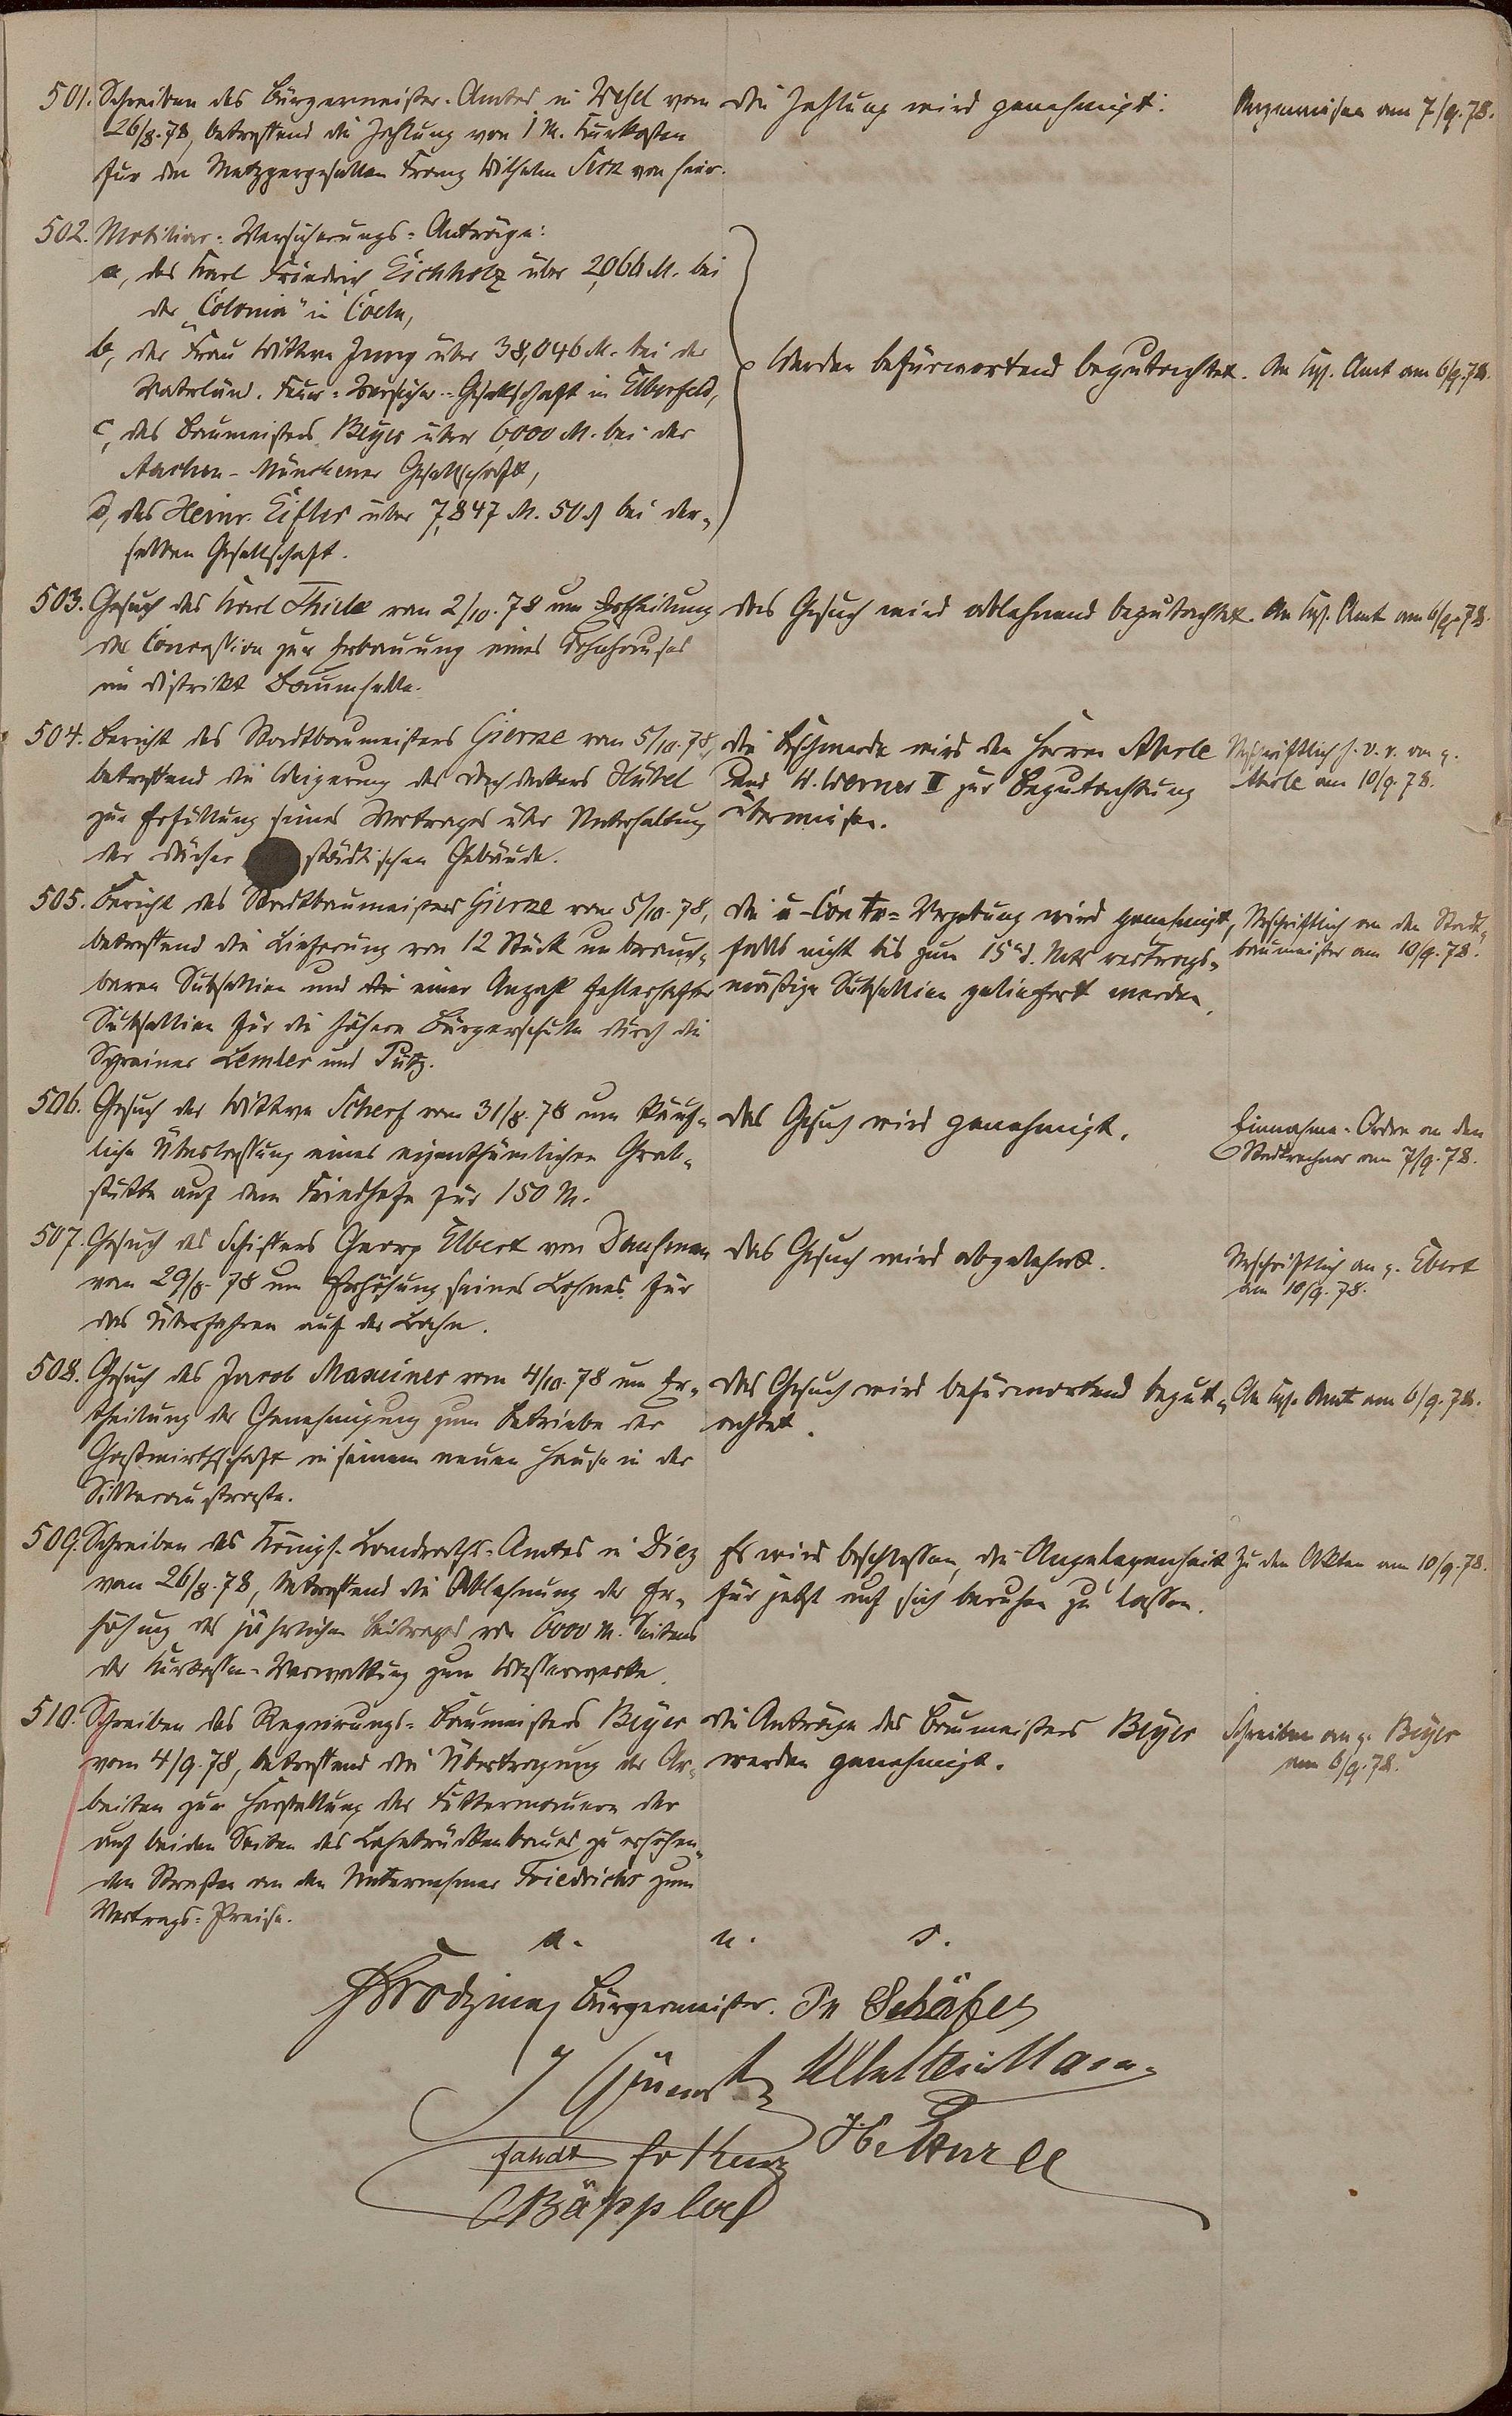 501. Schreiben des Bürgermeister-Amtes in Wesel vom
26/8.78, betreffend die Zahlung von 1 M. Kurkosten
für den Metzgergesellen Franz Wilhelm von hier.
Die Zahlung wird genehmigt.
Angewiesen am 7/9.78.
502. Mobiliar-Versicherungs-Anträge:
a, des Karl Friedrich Eichholz über 2,066 M. bei
der „Colonia" in Cöln,
b, der Frau Wittwe Jung über 38,046 M. bei der
Vaterländ. Feuer-Versicher.-Gesellschaft in Elberfeld,
c, des Baumeisters Beyer über 6,000 M. bei der
Aachen-Münchener Gesellschaft,
d, des Heinr. Eifler über 7,847 M. 50 ₰ bei der-
selben Gesellschaft.
Werden befürwortend begutachtet.
An Kgl. Amt am 6/9.78.
503. Gesuch des Karl Thiele vom 2/10.78 um Ertheilung
der Concession zur Erbauung eines Wohnhauses
im Distrikt
Das Gesuch wird ablehnend begutachtet.
An Kgl. Amt am 6/9.78.
504. Bericht des Stadtbaumeisters Gierne vom 5/10.78,
betreffend die Weigerung des Dachdeckers Hübel
zur Erfüllung seines Vertrages über Unterhaltung
der Dächer städtischen Gebäude.
Die Beschwerde wird den Herren Aberle
und H. Werner II zur Begutachtung
überwiesen.
Urschriftlich an H.
Aberle am 10/9.78.
505. Bericht des Stadtbaumeisters Gierne vom 5/10.78,
betreffend die Lieferung von 12 Stück unbrauch-
baren Subsellien und die einer Anzahl fehlerhafter
Subsellien für die höhere Bürgerschule durch die
Schreiner Lemler und Putz.
Die à-Conto-Vergebung wird genehmigt,
falls nicht bis zum 15ten d. Mts vertrags-
mäßige Subsellien geliefert werden.
Urschriftlich an den Stadt-
baumeister am 10/9.78.
506. Gesuch der Wittwe Scherf vom 31/8.78 um käuf-
liche Überlassung eines eigenthümlichen Grab-
stätte auf dem Friedhofe für 150 M.
Das Gesuch wird genehmigt.
Einnahme-Ordre an den
Stadtrechner am 7/9.78.
507. Gesuch des Schiffers Georg Elbert von Dausenau
vom 29/8.78 um Erhöhung seines Lohnes für
das Überfahren auf der Lahn.
Das Gesuch wird abgelehnt.
Urschriftlich an H. Ebert
am 10/9.78.
508. Gesuch des Jacob Maxeiner vom 4/10.78 um Er-
theilung der Genehmigung zum Betriebe der
Gastwirthschaft in seinem neuen Hause in der
Das Gesuch wird befürwortend begut-
achtet.
An Kgl. Amt am 6/9.78.
509. Schreiben des Königl. Landraths-Amtes in Diez
vom 26/8.78, betreffend die Ablehnung der Er-
höhung des jährlichen Beitrages von 6000 M. Seitens
der Kurkassen-Verwaltung zum Wasserwerke.
Es wird beschlossen, die Angelegenheit
für jetzt auf sich beruhen zu lassen.
Zu den Akten am 10/9.78.
510. Schreiben des Regierungs-Baumeisters Beyer
vom 4/9.78, betreffend die Übertragung der Ar-
beiten zur Herstellung der Futtermauern der
auf beiden Seiten des Lahnbrückenbaues zu erhöhen-
den Strassen an den Unternehmer Friedrichs zum
Vertrags-Preise.
Die Anträge des Baumeisters Beyer
werden genehmigt.
Schreiben an H. Beyer
am 6/9.78.
a. u. s.
Bürgermeister. Schäfer